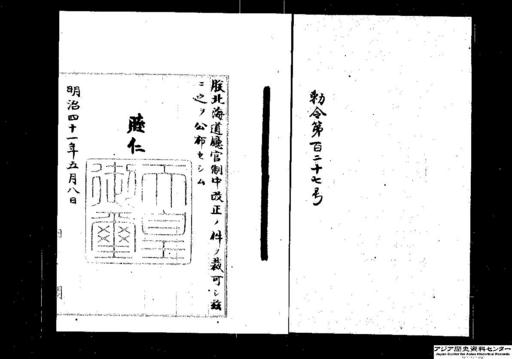 勅令第百二十七号
朕北海道廳官制中改正ノ件ヲ裁可シ玆
ニ之ヲ公布セシム
睦仁
天皇御璽
明治四十一年五月八日
アジア歴史資料センター
Japan Center for Asian Historical Records